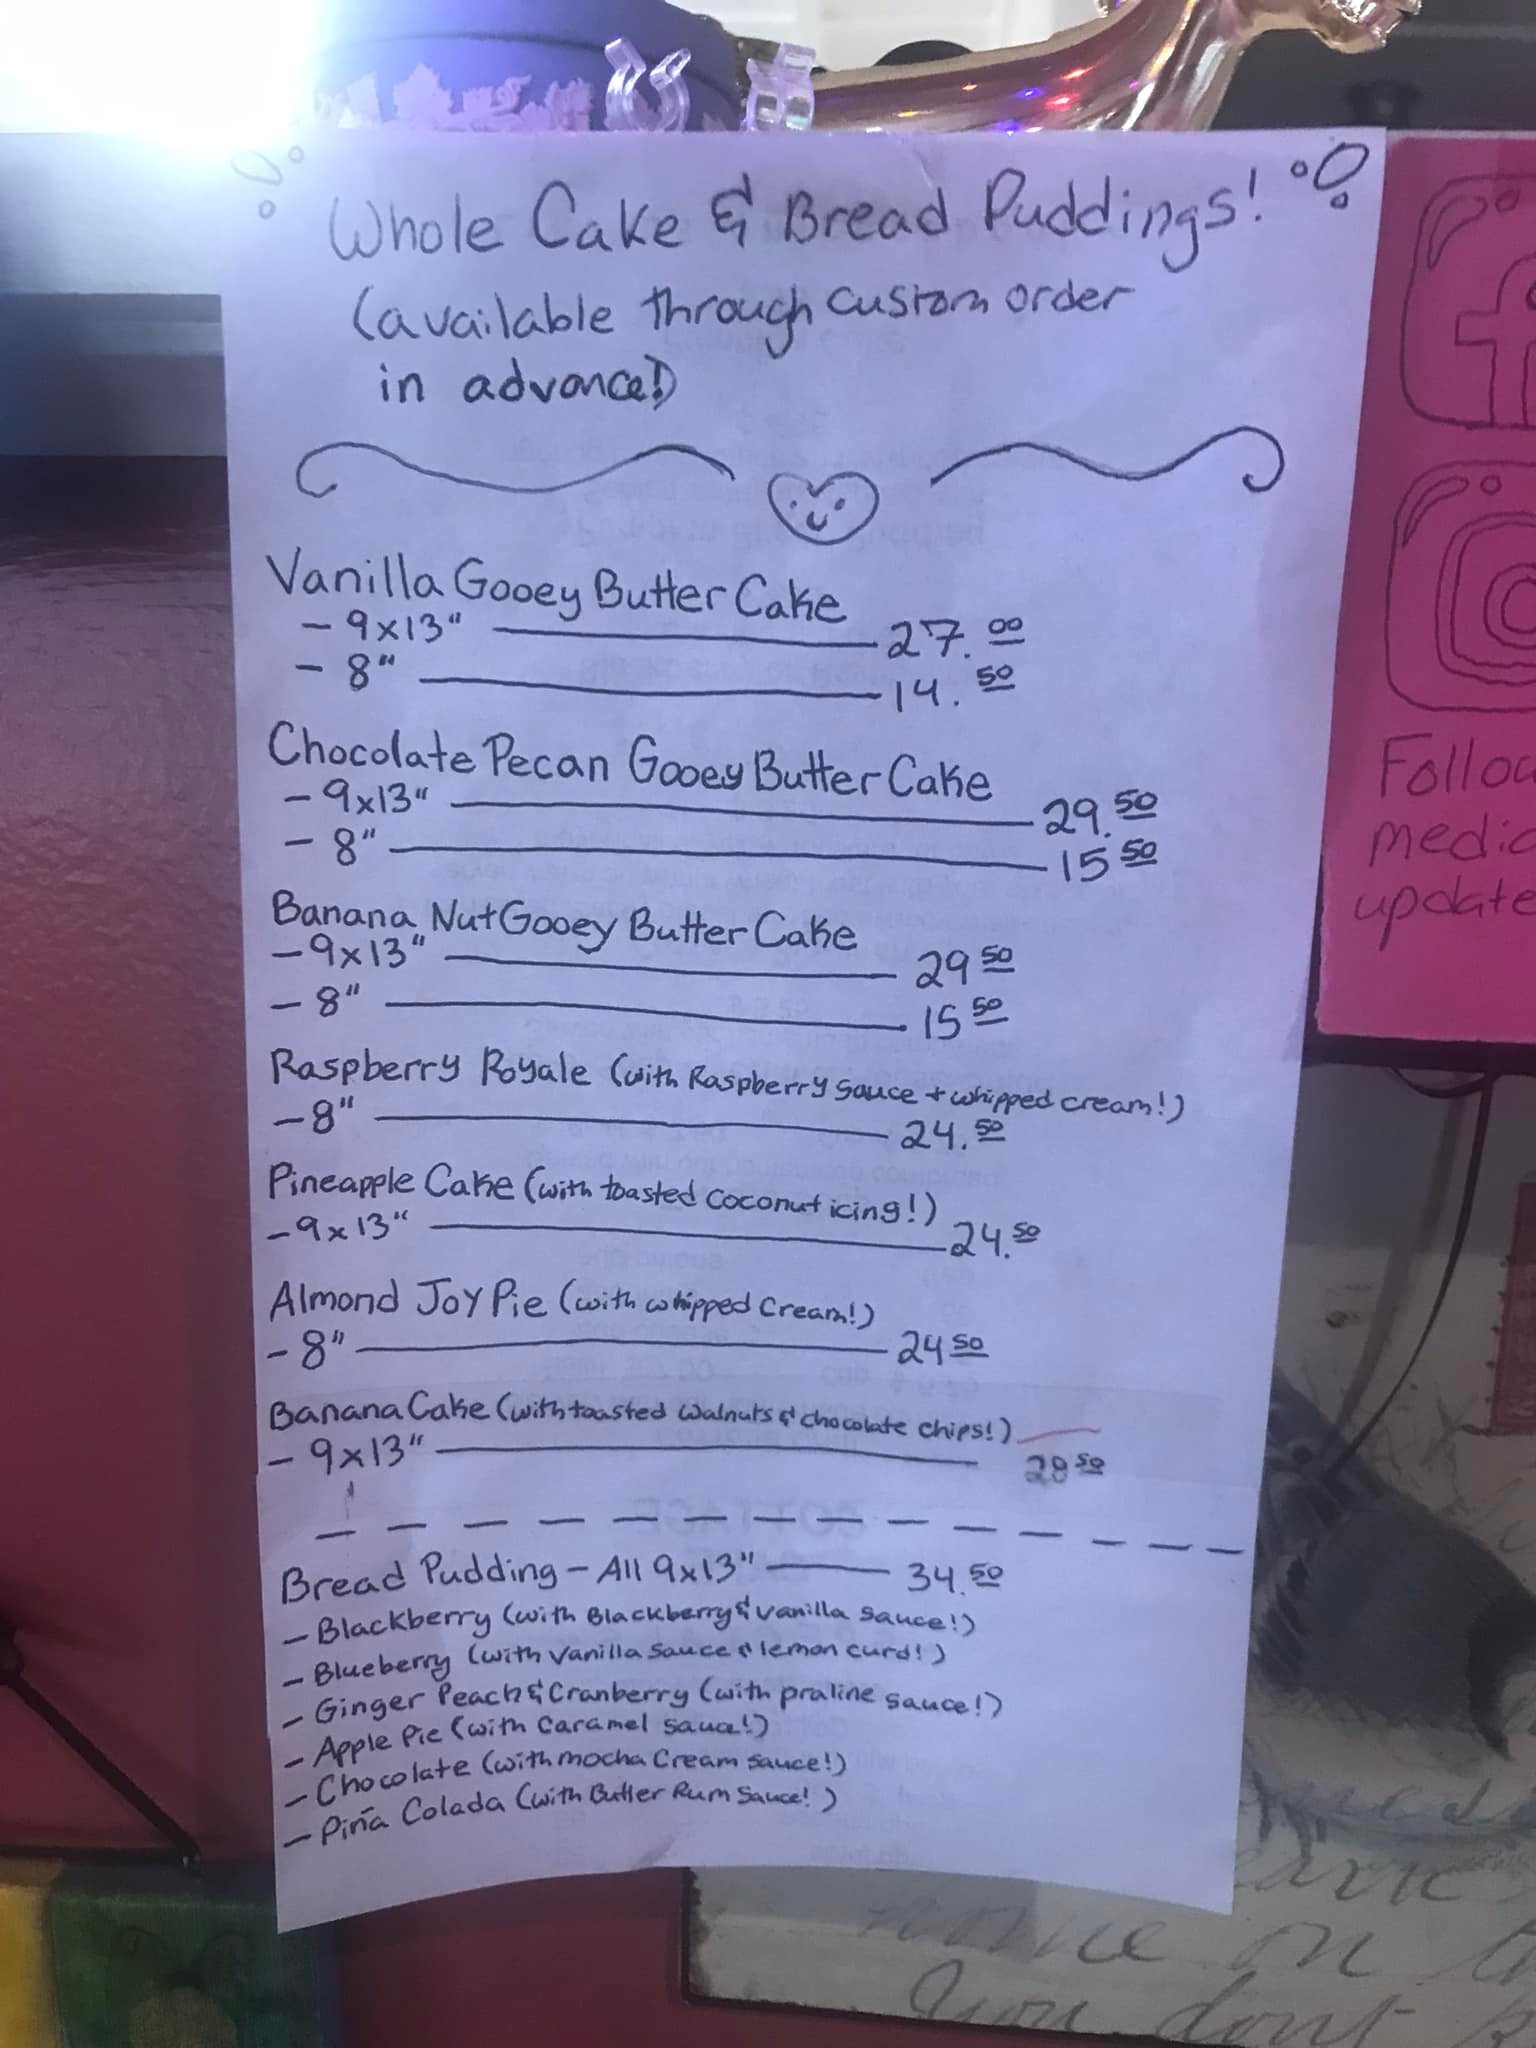 Whole Cake & Bread Puddings!
(available through custom order
in advance!)
Vanilla Gooey Butter Cake
- 9x13" 27.00
- 8" 14.50
Chocolate Pecan Gooey Butter Cake
- 9x13" 29.50
- 8" 15 50
Banana Nut Gooey Butter Cake
- 9x13" 29 50
- 8" 15 50
Raspberry Royale (with Raspberry sauce + whipped cream!)
- 8" 24.50
Pineapple Cake (with toasted coconut icing!)
- 9x13" 24.50
Almond Joy Pie (with whipped cream!)
- 8" 24 50
Banana Cake (with toasted walnuts & chocolate chips!)
- 9x13" 28 50
Bread Pudding - All 9x13" 34.50
- Blackberry (with Blackberry & vanilla sauce!)
- Blueberry (with vanilla sauce & lemon curd!)
- Ginger Peach & Cranberry (with praline sauce!)
- Apple Pie (with caramel sauce!)
- Chocolate (with mocha cream sauce!)
- Piña Colada (with Butter Rum Sauce!)
Follow
media
update
on
You dont